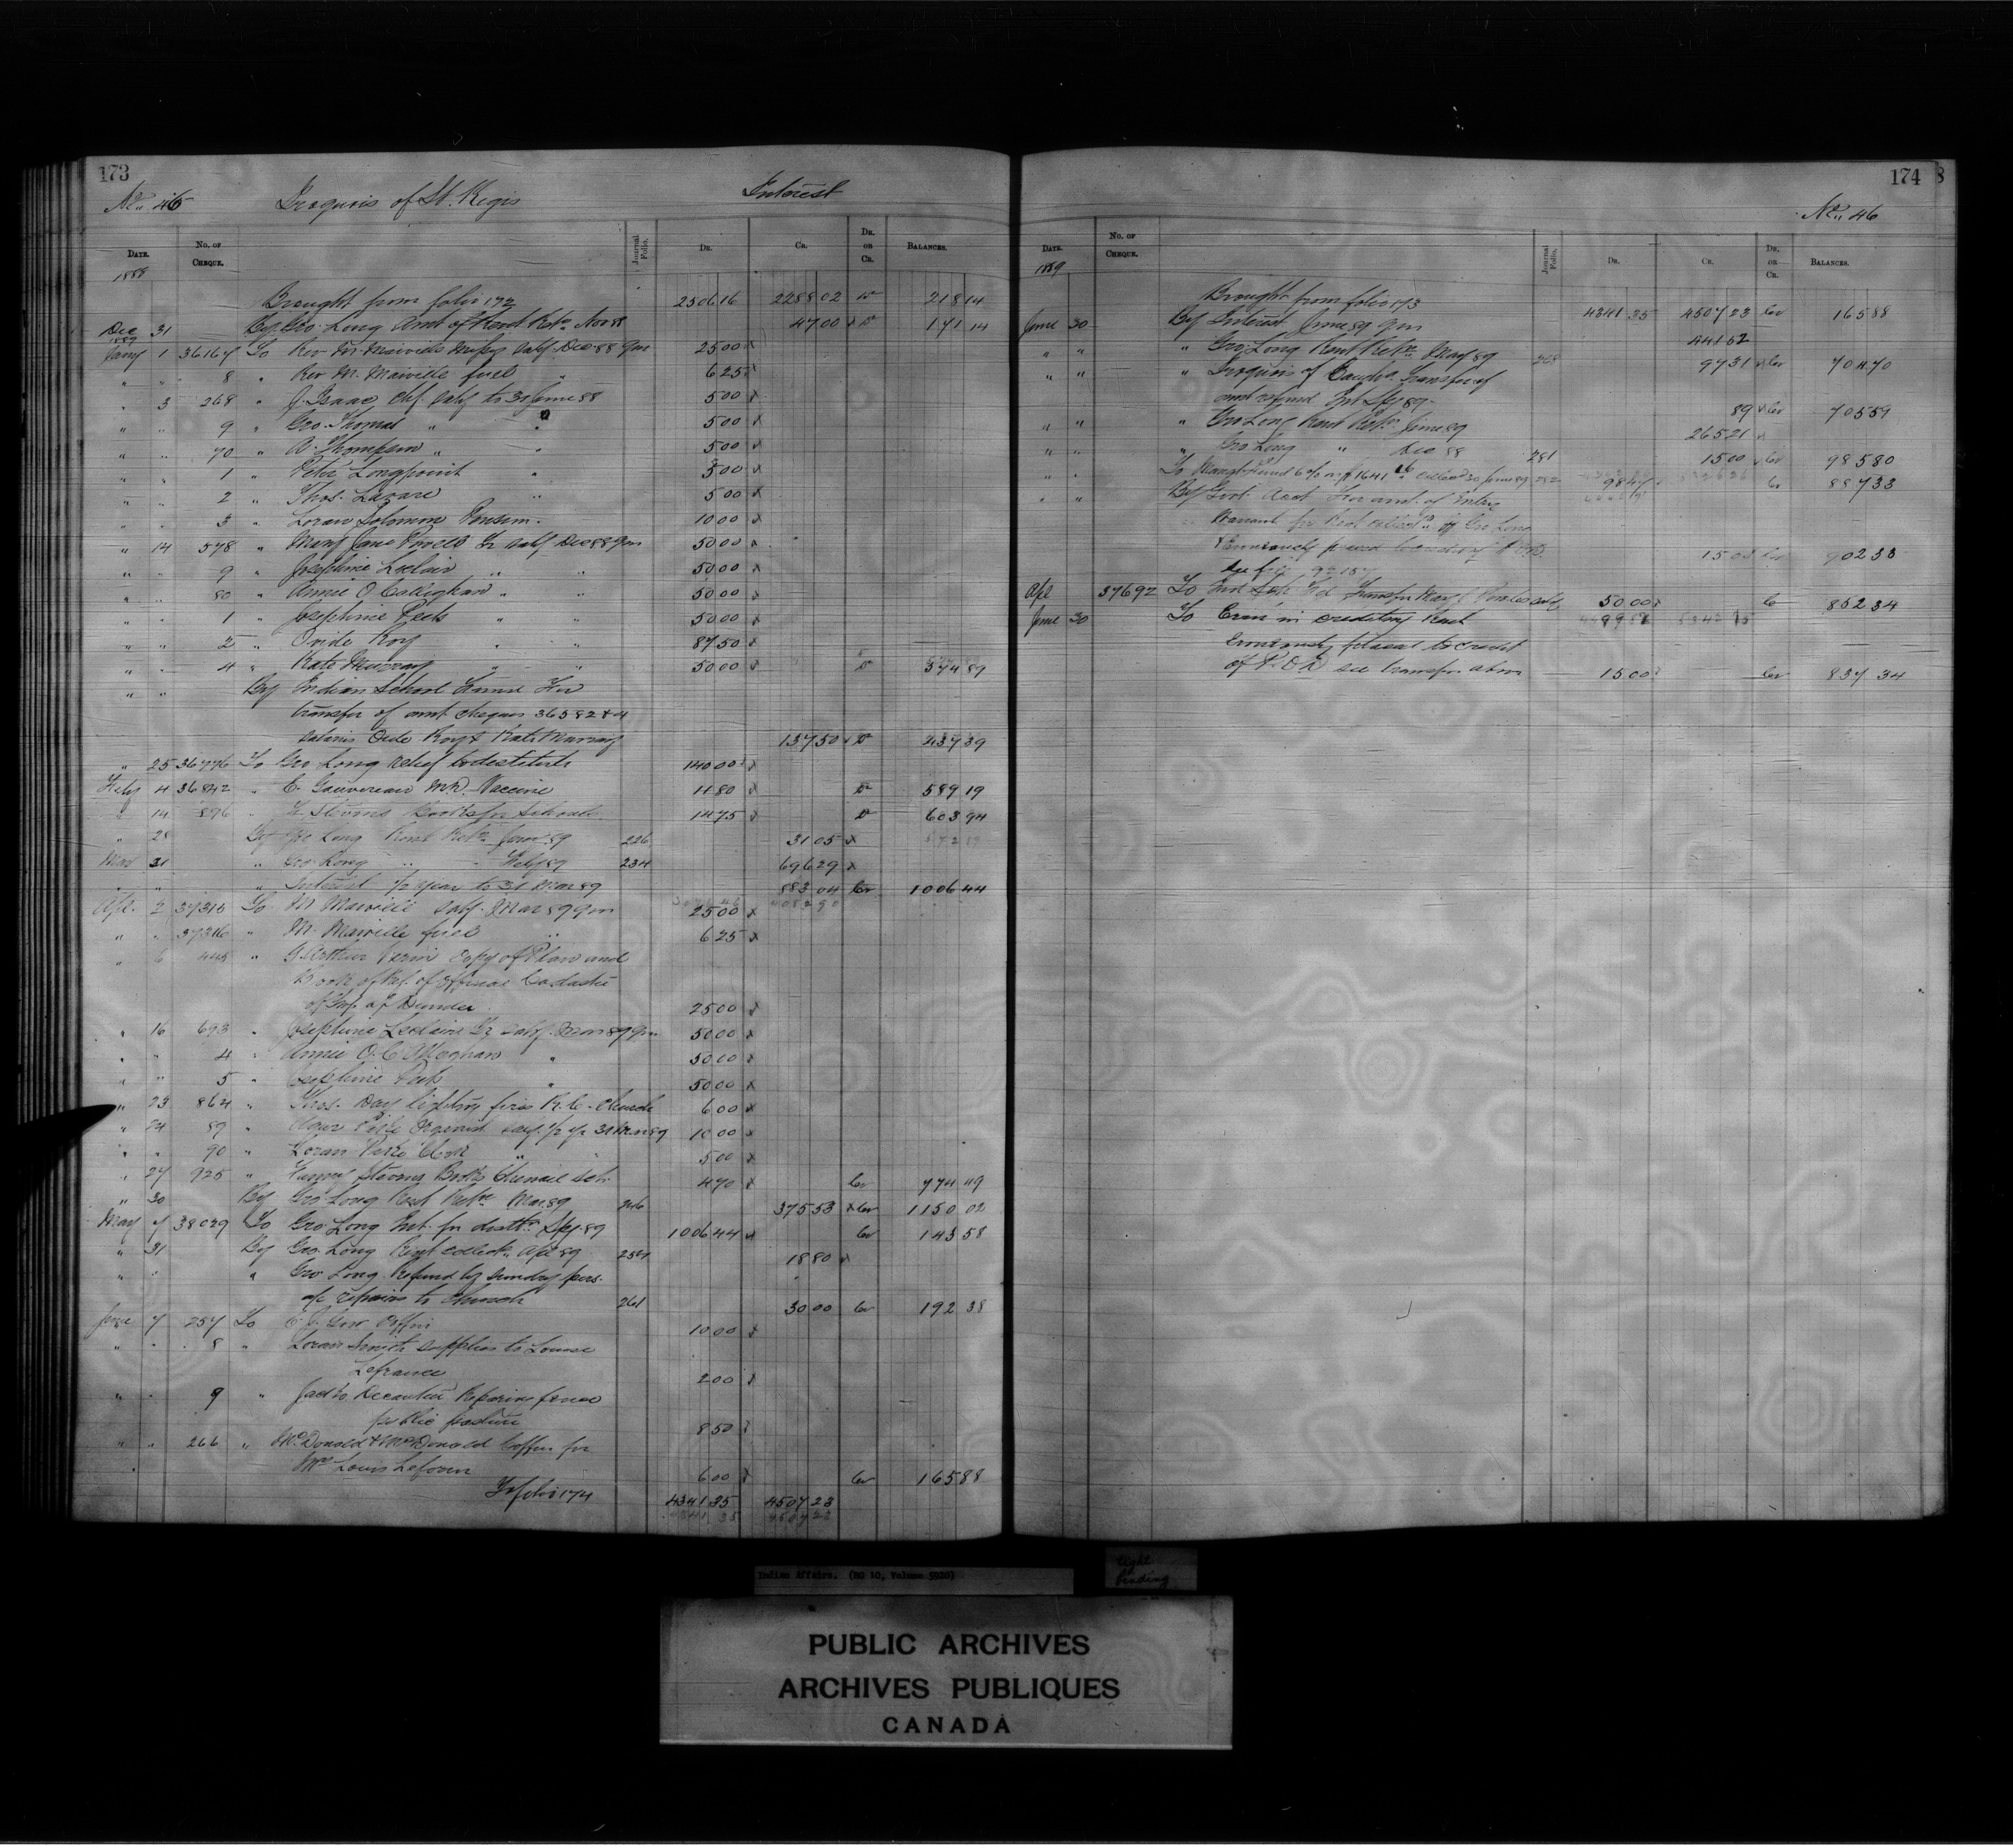 173
No. 46 Iroquois of St. Regis Interest
DATE. NO. OF CHEQUE. Journal Folio. DR. CR. DR. OR CR. BALANCES.
1888
Brought from folio 172 2506 16 2288 02 Dr 218 14
Dec 31 By Geo. Long Amt of Rent Retn Nov 88 47 00 x Dr 171 14
1889
Jany 1 36167 To Rev M. Mainville Missy Saly Dec 88 Qr 25 00 x
" " 8 " Rev M. Mainville fuel " 6 25 x
" 3 268 " J. Isaac Chf. Saly to 31 June 88 5 00 x
" " 9 " Geo. Thomas " " 5 00 x
" " 70 " A. Thompson " " 5 00 x
" " 1 " Peter Longpoint " 5 00 x
" " 2 " Thos. Lazare " 5 00 x
" " 3 " Loran Solomon Pension. 10 00 x
" 14 578 " Mary Jane Powell Tr Saly Dec 88 Qr 50 00 x
" " 9 " Josephine Leclair " " 50 00 x
" " 80 " Annie O'Callighan " " 50 00 x
" " 1 " Josephine Peets " " 50 00 x
" " 2 " Ovide Roy " " 87 50 x
" " 4 " Kate Murray " " 50 00 x Dr 574 89
" " By Indian School Fund For
transfer of amt cheques 36582 & 4
salaries Ovide Roy & Kate Murray 137 50 x Dr 437 39
" 25 36776 To Geo Long relief to destitute 140 00 x
Feby 4 36842 " E. Gauvereau M.D. Vaccine 11 80 x Dr 589 19
" 14 896 " Stevens Books for Schools 14 75 x Dr 603 94
" 28 By Geo Long Rent Retn Jany 89 226 31 05 x
Mar 31 " Geo Long " " Feby 89 234 696 29 x
" " " Interest 1/2 year to 31 Mar 89 883 04 Cr 1006 44
Apl. 2 37315 To M Mainville Saly. Mar 89 Qr 25 00 x
" " 37316 " M. Mainville fuel " 6 25 x
" 6 445 " Arthur copy of Plan and
Book of Ref. of Official Cadastre
of Twp. of Dundee 25 00 x
" 16 693 " Josephine Leclaire Tr Saly. Mar 89 Qr 50 00 x
" " 4 " Annie O'Callaghan " 50 00 x
" " 5 " Josephine Peets " 50 00 x
" 23 864 " Thos. Day lighting fires R.C. Church 6 00 x
" 24 89 " Organist Saly 1/2 yr 31 Mar 89 10 00 x
" " 90 " Loran Clerk " " 5 00 x
" 27 925 " Stevens Books Chenail Sch. 4 70 x Cr 774 49
" 30 By Geo Long Rent Retn Mar 89 246 375 53 x Cr 1150 02
May 7 38029 To Geo Long Int. for distbn Spg 89 1006 44 x Cr 143 58
" 31 By Geo. Long Rent collectn Apl 89 254 18 80 x
" " " Geo Long Refund by sundry pers.
a/c repairs to church 261 30 00 Cr 192 38
June 7 257 To Coffin 10 00 x
" " 8 " Loran Smith supplies to Louise
Lefrance 2 00 x
" " 9 " Repairing fence
public pasture 8 50 x
" " 266 " McDonald & McDonald Coffin for
Mrs Louis 6 00 x Cr 165 88
To folio 174 4341 35 4507 23
4341 35 4507 23
174
No. 46
DATE. NO. OF CHEQUE. Journal Folio. DR. CR. DR. OR CR. BALANCES.
1889
Brought from folio 173 4341 35 4507 23 Cr 165 88
June 30 By Interest June 89 Qr 441 52
" " " Geo Long Rent Retn May 89 268 97 31 x Cr 704 70
" " " Iroquois of Caughna. transfer of
amt refund Int Spg 89 89 x Cr 705 59
" " " Geo Long Rent Retn June 89 265 21 x
" " " Geo Long " Dec 88 281 15 00 x Cr 985 80
" " To Mangt Fund 6% on $1641 16 collectd 30 June 89 282 98 47 Cr 887 33
" " By Govt. Acct For amt. of
Warrant for Rent collectd by Geo Long
Erroneously placed to credit of P.O.D.
see folio 15 00 Cr 902 33
Apl 37692 To Ind Sch Fd transfer Mary J. Powell Saly 50 00 x Cr 852 34
June 30 To Error in crediting Rent
Erroneously placed to credit
of P.O.D. see transfer above 15 00 Cr 837 34
Indian Affairs. (RG 10, Volume 5920)
tight
binding
PUBLIC ARCHIVES
ARCHIVES PUBLIQUES
CANADA